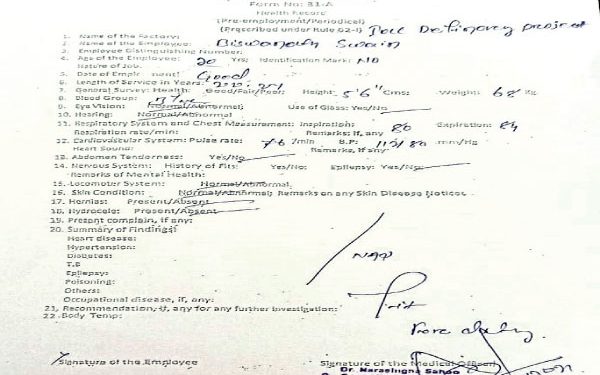 Form No: 31-A
Health Record
(Pre-employment/Periodical)
(Prescribed under Rule 62-I)
1. Name of the Factory: project
2. Name of the Employee: Biswanath Swain
3. Employee Distinguishing Number:
4. Age of the Employee: 20 Yrs; Identification Mark: NO
Nature of Job:
5. Date of Employment: Good
6. Length of Service in Years:
7. General Survey: Health: Good/Fair/Poor; Height: 5'6" Cms: Weight: 68 Kg
8. Blood Group: B +ve
9. Eye Vision: Normal/Abnormal; Use of Glass: Yes/No
10. Hearing: Normal/Abnormal
11. Respiratory System and Chest Measurement: Inspiration: 80 Expiration: 84
Respiration rate/min: Remarks: if, any
12. Cardiovascular System: Pulse rate: 76 /min B.P: 110/80 mm/Hg
Heart Sound: Remarks, if any:
13. Abdomen Tenderness: Yes/No
14. Nervous System: History of Fits: Yes/No: Epilepsy: Yes/No
Remarks of Mental Health:
15. Locomotor System: Normal/Abnormal
16. Skin Condition: Normal/Abnormal; Remarks on any Skin Disease Notice:
17. Hernias: Present/Absent
18. Hydrocele: Present/Absent
19. Present complain, if any:
20. Summary of Findings:
Heart disease:
Hypertension:
Diabetes: NAD
T.B
Epilepsy:
Poisoning:
Others:
Occupational disease, if, any:
21. Recommendation, if, any for any further investigation:
22. Body Temp:
Signature of the Employee Signature of the Medical Officer
Dr. Narasingha Sahoo